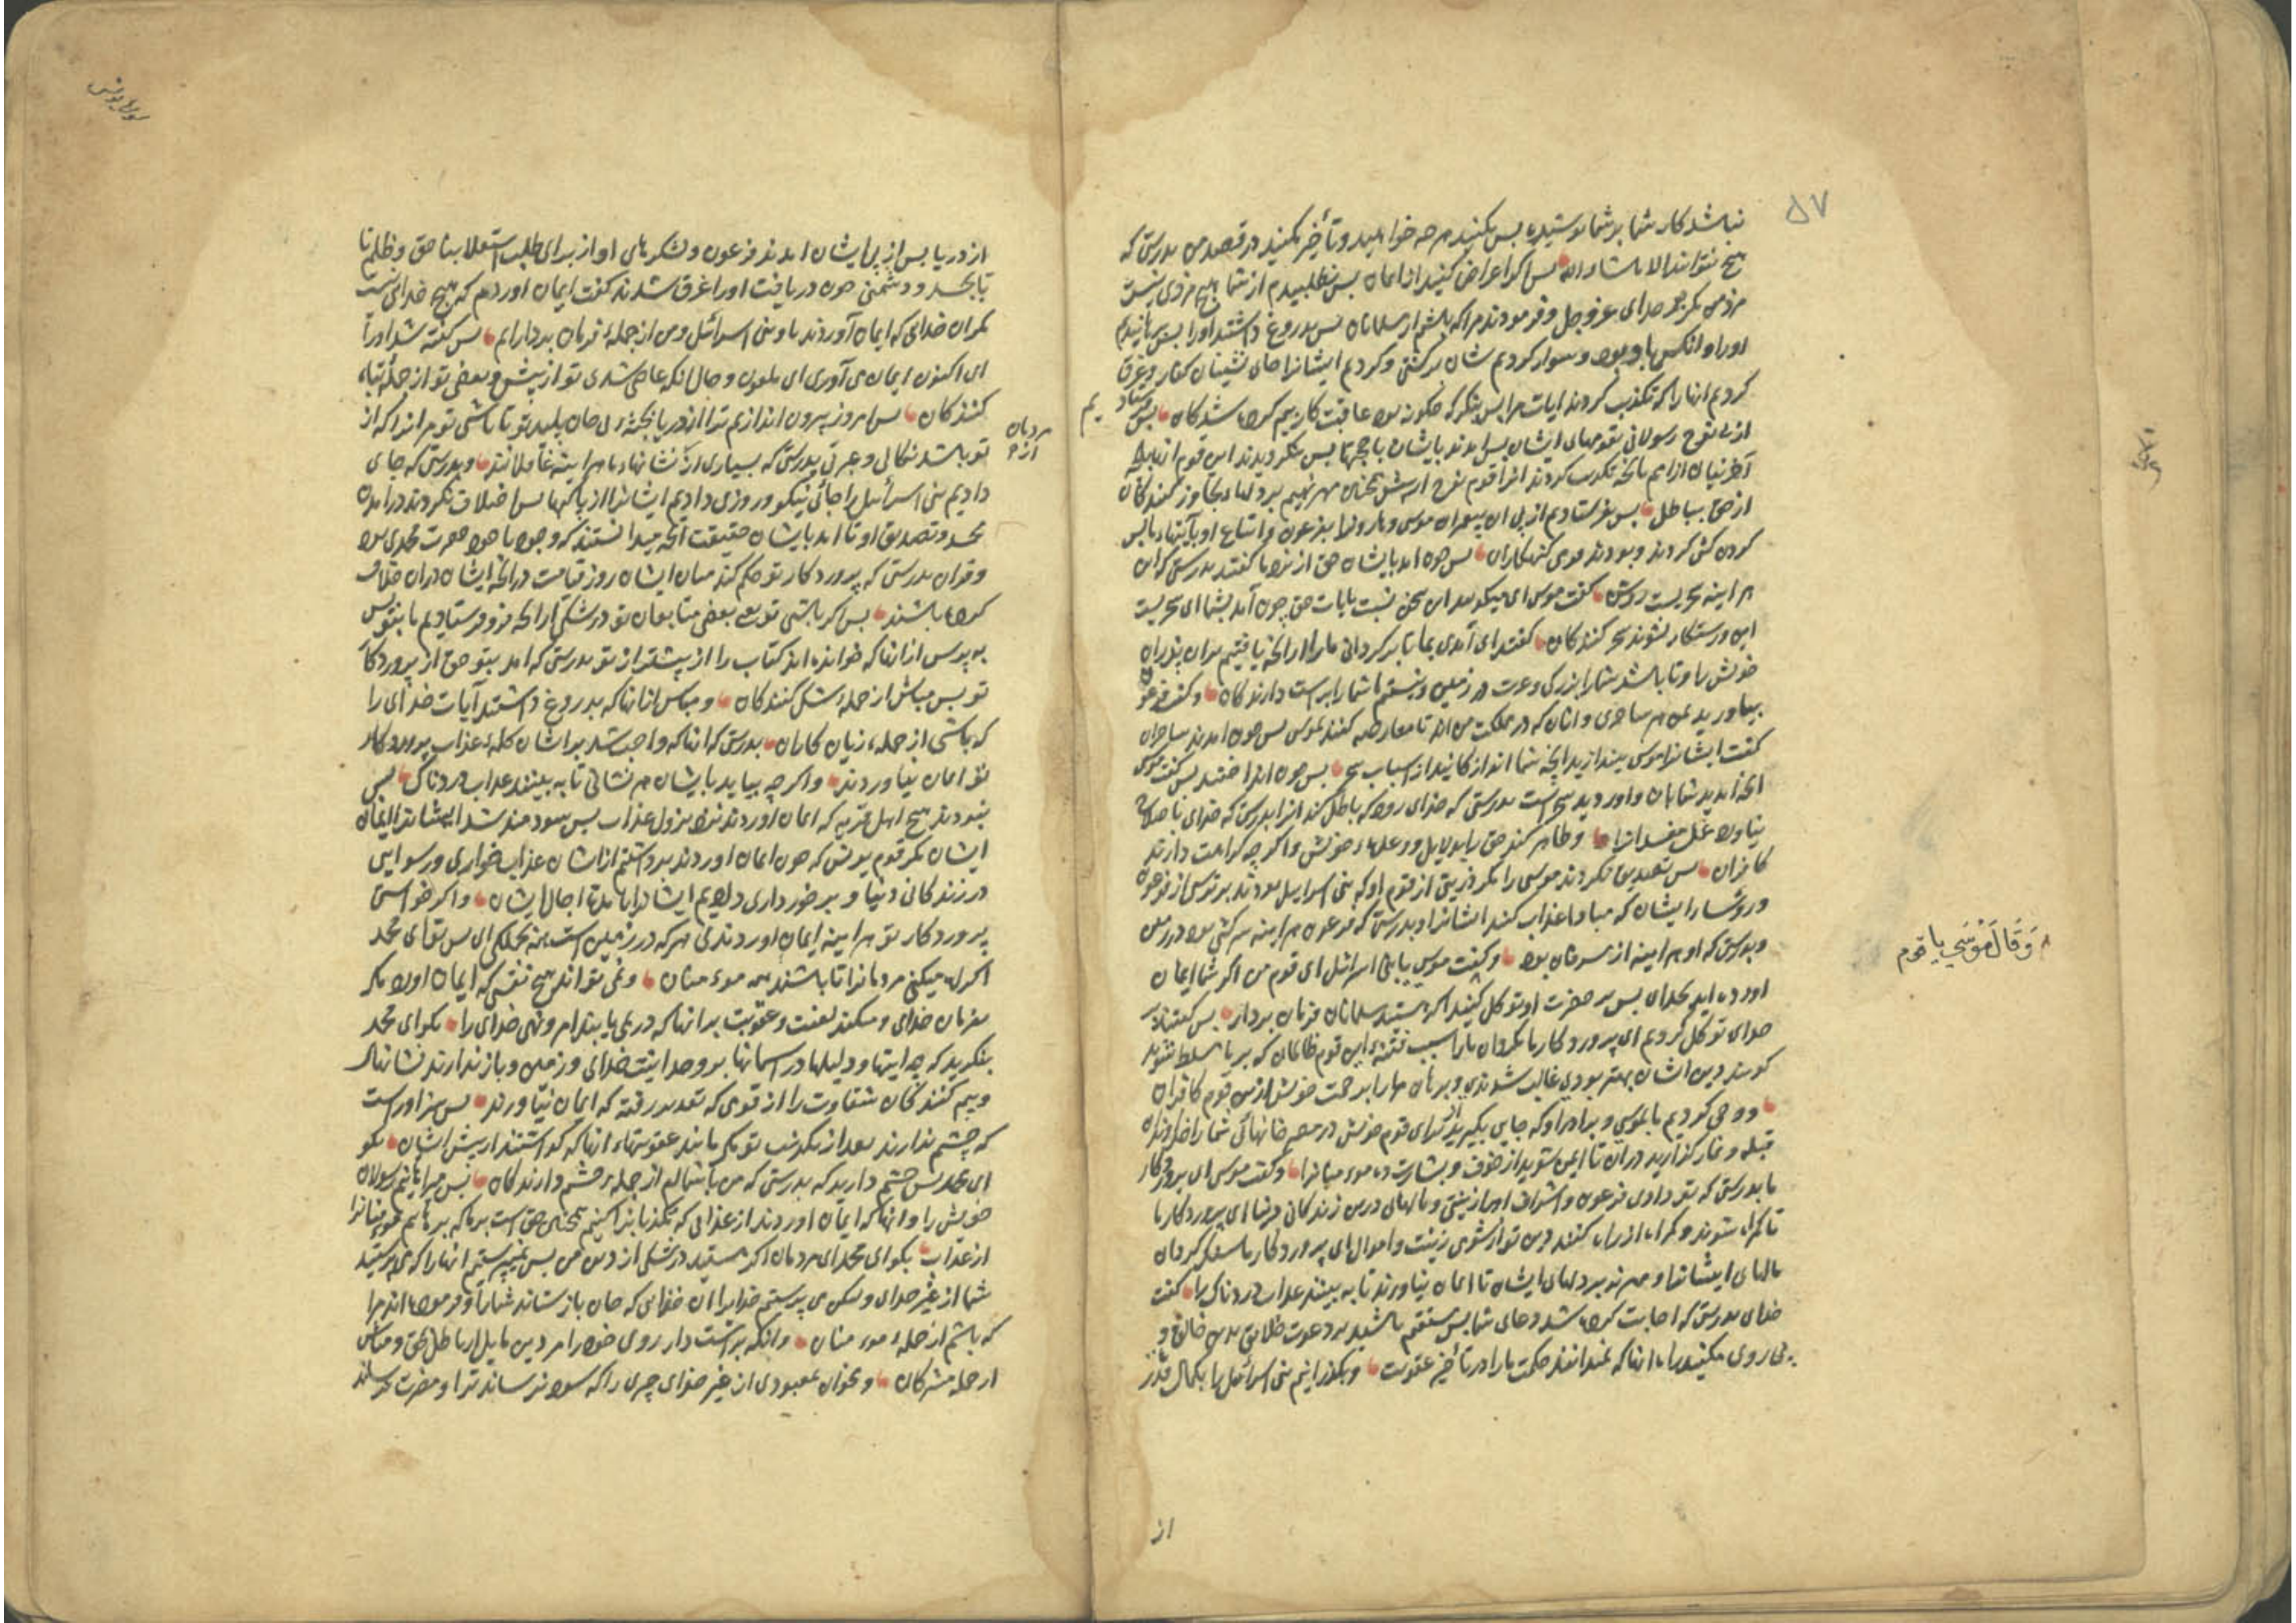 ۵۷
نباشد کار شما بر شما پوشیده بس بکنید هر چه خواهید و تأخیر مکنید در قصد من بدرستی که
هیچ نتوانید الا ماشاء الله بس اگر اعراض کنید از ایمان بس نطلبیدم از شما هیچ مزدی نیست
مزد من مکر بر خدای عز و جل و فرمودند مرا که باشم از مسلمانان بس بدروغ داشتند اورا بس برهانیدیم
اورا و انکس با او بود و سوار کردیم شان در کشتی و کردیم ایشانرا جای نشینان کفار و غرق
کردیم انها را که تکذیب کردند ایات مرا بس بنکر که چکونه بود عاقبت کار بیم کرده شدکان بس فرستادیم
از بی نوح رسولانی بقومهای ایشان بس امدند بایشان با حجتها بس نکرویدند این قوم از
آخرنیان از ایم بانچه تکذیب کردند انرا قوم نوح از بیش همچنان مهر نهیم بر دلهاء تجاوز کنندکان
از حق بباطل بس بفرستادیم از بی ان بیغمبران موسی و هارونرا بفرعون و اتباع او بآیتهاء ما بس
کردن کشی کردند و بودند قومی کنهکاران بس چون امد بایشان حق از نزد ما کفتند بدرستی که این
هر اینه سحریست روشن کفت موسی ای میکویید این سخن نسبت بایات حق چون آمد بشما ای سحریست
این و رستکار نشوند سحر کنندکان کفتند ای آمدی بما تا برکردانی ما را از انچه یافتیم بران پدران
خویش را و تا باشد شما را بزرکی و عزت در زمین و نیستیم ما شما را براست دارندکان و کفت فرعون
بیاورید بمن هر ساحری دانان که در مملکت من اند تا معارضه کنند بموسی بس چون امدند ساحران
کفت ایشانرا موسی بیندازید انچه شما اندازکانید از اسباب سحر بس چون انداختند بس کفت موسی
انچه امدید شما بان و اوردید سحر است بدرستی که خدای زود که باطل کند انرا بدرستی که خدای با صلاح
نیاورد عمل مفسدانرا و ظاهر کند حق را بدلایل و وعدهاء خویش و اکر چه کراهت دارند
کافران بس تصدیق نکردند موسی را مکر ذریتی از قوم او که بنی اسرایل بودند بر ترس از فرعون
و روسا ایشان که مبادا عذاب کند ایشانرا و بدرستی که فرعون هر اینه سرکشی بود در زمین
و بدرستی که او هر اینه از مسرفان بود و کفت موسی با بنی اسرائیل ای قوم من اکر شما ایمان
اورده اید بخدای بس بر حضرت او توکل کنید اکر هستید مسلمانان فرمان بردار بس کفتند بر
خدای توکل کردیم ای پروردکار ما مکردان ما را سبب فتنهء این قوم ظالمان که بر ما مسلط شوند
کویند دین ایشان بهتر بودی غالب نشوندی و برهان ما را برحمت خویش از بن قوم کافران
و وحی کردیم ما بموسی و برادر او که جای بکیرید از برای قوم خویش در مصر خانهای شما را خداوند
قبله و نماز کذارید دران تا ایمن شوید از خوف و بشارت ده مومنانرا و کفت موسی ای پروردکار
ما بدرستی که تو دادی فرعون و اشراف اورا زینتی و مالهای درین زندکانی دنیا ای پروردکار ما
تا کمراه شوند و کمراه از راه کنند دین تو از شومی زینت و اموال ای پروردکار ما مکردان
مالهای ایشانرا و مهر نه بر دلهای ایشان تا ایمان نیاورند تا به بینند عذاب دردناک را کفت
خدای بدرستی که اجابت کرده شد دعای شما بس مستقیم باشید بر دعوت خلایق بدین خالق و
بی روی مکنید راه انها که نمیدانند حکمت ما را در تأخیر عقوبت و بکذرانیم بنی اسرائیل را بکمال قدرت
از
وَقَالَ مُوسَی یا قوم
سورة یونس
از دریا بس از پی ایشان امدند فرعون و لشکرهای او از برای طلب استعلا بناحق و ظلم تا
تا بحد و دشمنی چون دریافت اورا غرق شدند کفت ایمان اوردم که هیچ خدای نیست
مکر ان خدای که ایمان آوردند باو بنی اسرائیل و من از جملهء فرمان بردارانم بس کفته شد اورا
ای اکنون ایمان می آوری ای ملعون و حال انکه عاصی شدی تو از پیش و بعضی تو از جملهء تباه
کنندکان بس امروز بیرون اندازیم ترا از دریا بجثهء بی جان پلید تو تا باشی تو مر انرا که از
مردمان از
تو باشد نکالی و عبرتی بدرستی که بسیاری از نشانهاء ما هر اینه غافلانند و بدرستی که جای
دادیم بنی اسرائیل را جائی نیکو و روزی دادیم ایشانرا از پاکیها بس اختلاف نکردند در امدن
محمد و تصدیق او تا امد بایشان حقیقت آنچه میدانستند
و قران بدرستی که پروردکار تو حکم کند میان ایشان روز قیامت درانچه ایشان دران خلاف
کرده باشند بس اکر باشی تو یعنی بعضی متابعان تو در شکی از انچه فرو فرستادیم ما بتو بس
بپرس از انها که خوانده اند کتاب را از پیشتر از تو بدرستی که امد بتو حق از پروردکار
تو بس مباش از جملهء شک کنندکان و مباش از انها که بدروغ داشتند آیات خدای را
که باشی از جملهء زیان کاران بدرستی که انها که واجب شد بر ایشان کلمهء عذاب پروردکار
تو ایمان نیاوردند و اکر چه بیاید بایشان هر نشانی تا به بینند عذاب دردناک بس
نبودند هیچ اهل قریه که ایمان اوردند نزد نزول عذاب بس سودمند شد ایشانرا ایمان
ایشان مکر قوم یونس که چون ایمان اوردند برداشتیم از ایشان عذاب خواری و رسوایی
در زندکانی دنیا و برخورداری دادیم ایشانرا تا مدت اجال ایشان و اکر خواستی
پروردکار تو هر اینه ایمان اوردندی هر که در زمین است همه بجملکی ای بس تو ای محمد
اکراه میکنی مردمانرا تا باشند همه مومنان و نمی تواند هیچ نفسی که ایمان اورد مکر
بفرمان خدای و میکند لعنت و عقوبت برانها که درنمی یابند امر و نهی خدای را بکو ای محمد
بنکرید که چه ایتها و دلیلها در اسمانها بر وحدانیت خدای و زمین و باز ندارند نشانها
و بیم کنندکان شقاوت را از قومی که تقدیر رفته که ایمان نیاورند بس سزاوارست
که چشم ندارند بعد از تکذیب تو مکر مانند عقوبتهاء انها که کذاشتند از پیش ایشان بکو
ای محمد بس چشم دارید که بدرستی که من با شما ام از جملهء چشم دارندکان بس میرهانیم رسولان
خویش را و انها که ایمان اوردند از عذابی که تکذیبانرا کنیم همچنان حق است بر ما که برهانیم مومنانرا
از عذاب بکو ای محمد ای مردمان اکر هستید در شکی از دین من بس نمیپرستم انها را که می پرستید
شما از غیر خدای ولکن می پرستم خدایرا ان خدای که جان باز ستاند شما را و فرموده اند مرا
که باشم از جملهء مومنان و انکه براست دار روی خود را در دین مایل از باطل بحق و مباش
از جمله مشرکان و مخوان بمعبودی از غیر خدای چیزی را که سود نرساند ترا و مضرت نرساند